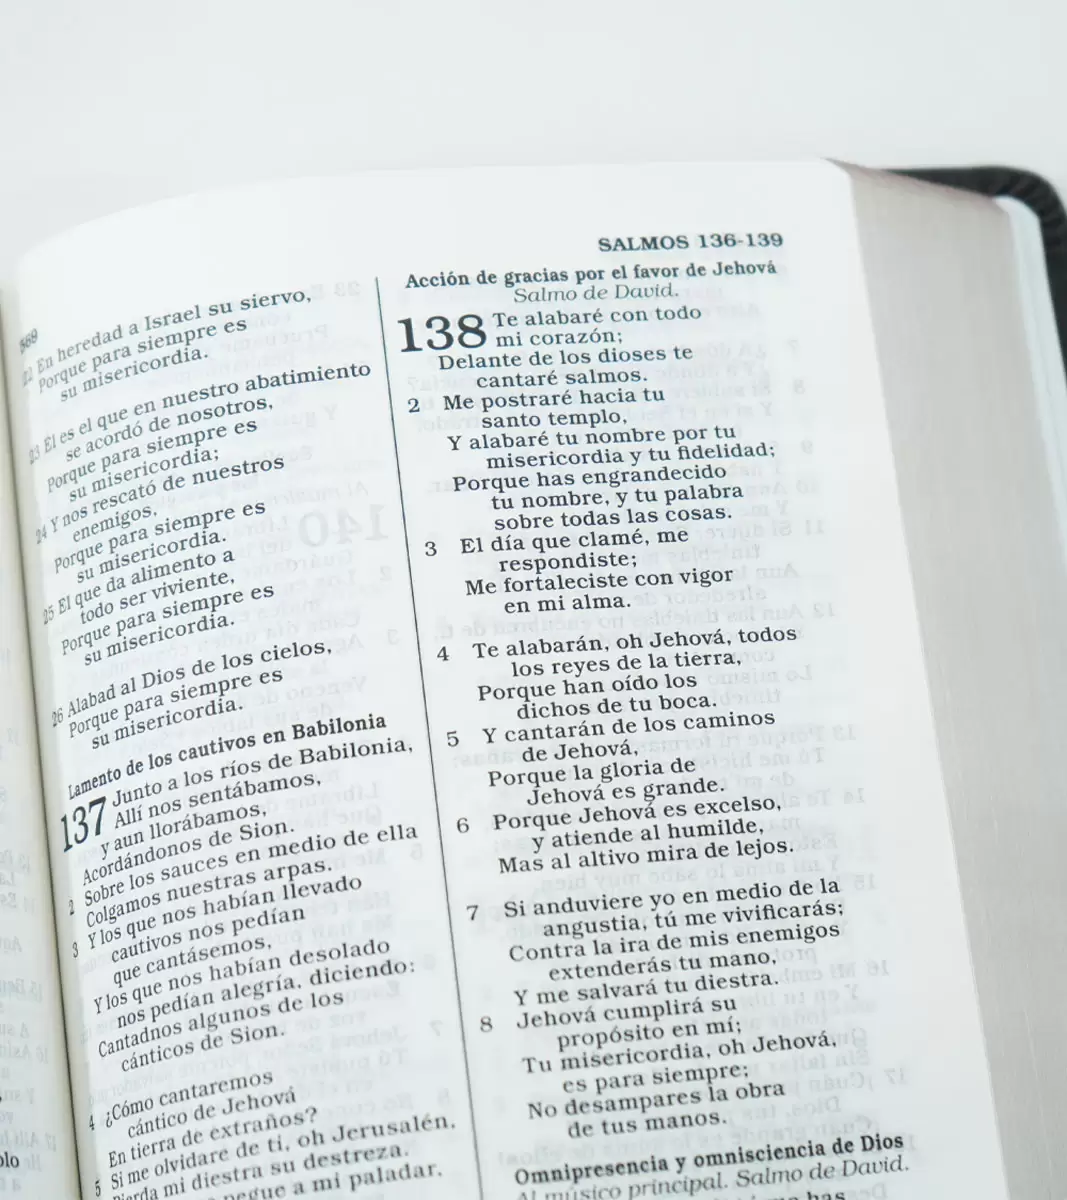 569
SALMOS 136-139
22 En heredad a Israel su siervo,
Porque para siempre es
su misericordia.
23 Él es el que en nuestro abatimiento
se acordó de nosotros,
Porque para siempre es
su misericordia;
24 Y nos rescató de nuestros
enemigos,
Porque para siempre es
su misericordia.
25 El que da alimento a
todo ser viviente,
Porque para siempre es
su misericordia.
26 Alabad al Dios de los cielos,
Porque para siempre es
su misericordia.
Lamento de los cautivos en Babilonia
137 Junto a los ríos de Babilonia,
Allí nos sentábamos,
y aun llorábamos,
Acordándonos de Sion.
2 Sobre los sauces en medio de ella
Colgamos nuestras arpas.
3 Y los que nos habían llevado
cautivos nos pedían
que cantásemos,
Y los que nos habían desolado
nos pedían alegría, diciendo:
Cantadnos algunos de los
cánticos de Sion.
4 ¿Cómo cantaremos
cántico de Jehová
En tierra de extraños?
5 Si me olvidare de ti, oh Jerusalén,
mi diestra su destreza.
a mi paladar,
Acción de gracias por el favor de Jehová
Salmo de David.
138 Te alabaré con todo
mi corazón;
Delante de los dioses te
cantaré salmos.
2 Me postraré hacia tu
santo templo,
Y alabaré tu nombre por tu
misericordia y tu fidelidad;
Porque has engrandecido
tu nombre, y tu palabra
sobre todas las cosas.
3 El día que clamé, me
respondiste;
Me fortaleciste con vigor
en mi alma.
4 Te alabarán, oh Jehová, todos
los reyes de la tierra,
Porque han oído los
dichos de tu boca.
5 Y cantarán de los caminos
de Jehová,
Porque la gloria de
Jehová es grande.
6 Porque Jehová es excelso,
y atiende al humilde,
Mas al altivo mira de lejos.
7 Si anduviere yo en medio de la
angustia, tú me vivificarás;
Contra la ira de mis enemigos
extenderás tu mano,
Y me salvará tu diestra.
8 Jehová cumplirá su
propósito en mí;
Tu misericordia, oh Jehová,
es para siempre;
No desampares la obra
de tus manos.
Omnipresencia y omnisciencia de Dios
Al músico principal. Salmo de David.
has